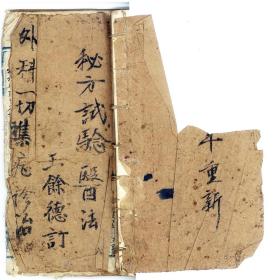 年重新
秘方試驗醫法
王餘德訂
外科一切集症診治